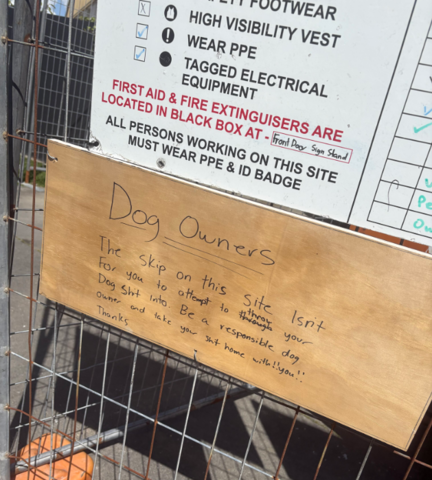 FOOTWEAR
HIGH VISIBILITY VEST
WEAR PPE
TAGGED ELECTRICAL
EQUIPMENT
FIRST AID & FIRE EXTINGUISERS ARE
LOCATED IN BLACK BOX AT - Front Door Sign Stand
ALL PERSONS WORKING ON THIS SITE
MUST WEAR PPE & ID BADGE
Dog Owners
The skip on this site Isn't
For you to attempt to throw your
Dog shit into Be a responsible dog
owner and take your shit home with!!you!!
Thanks